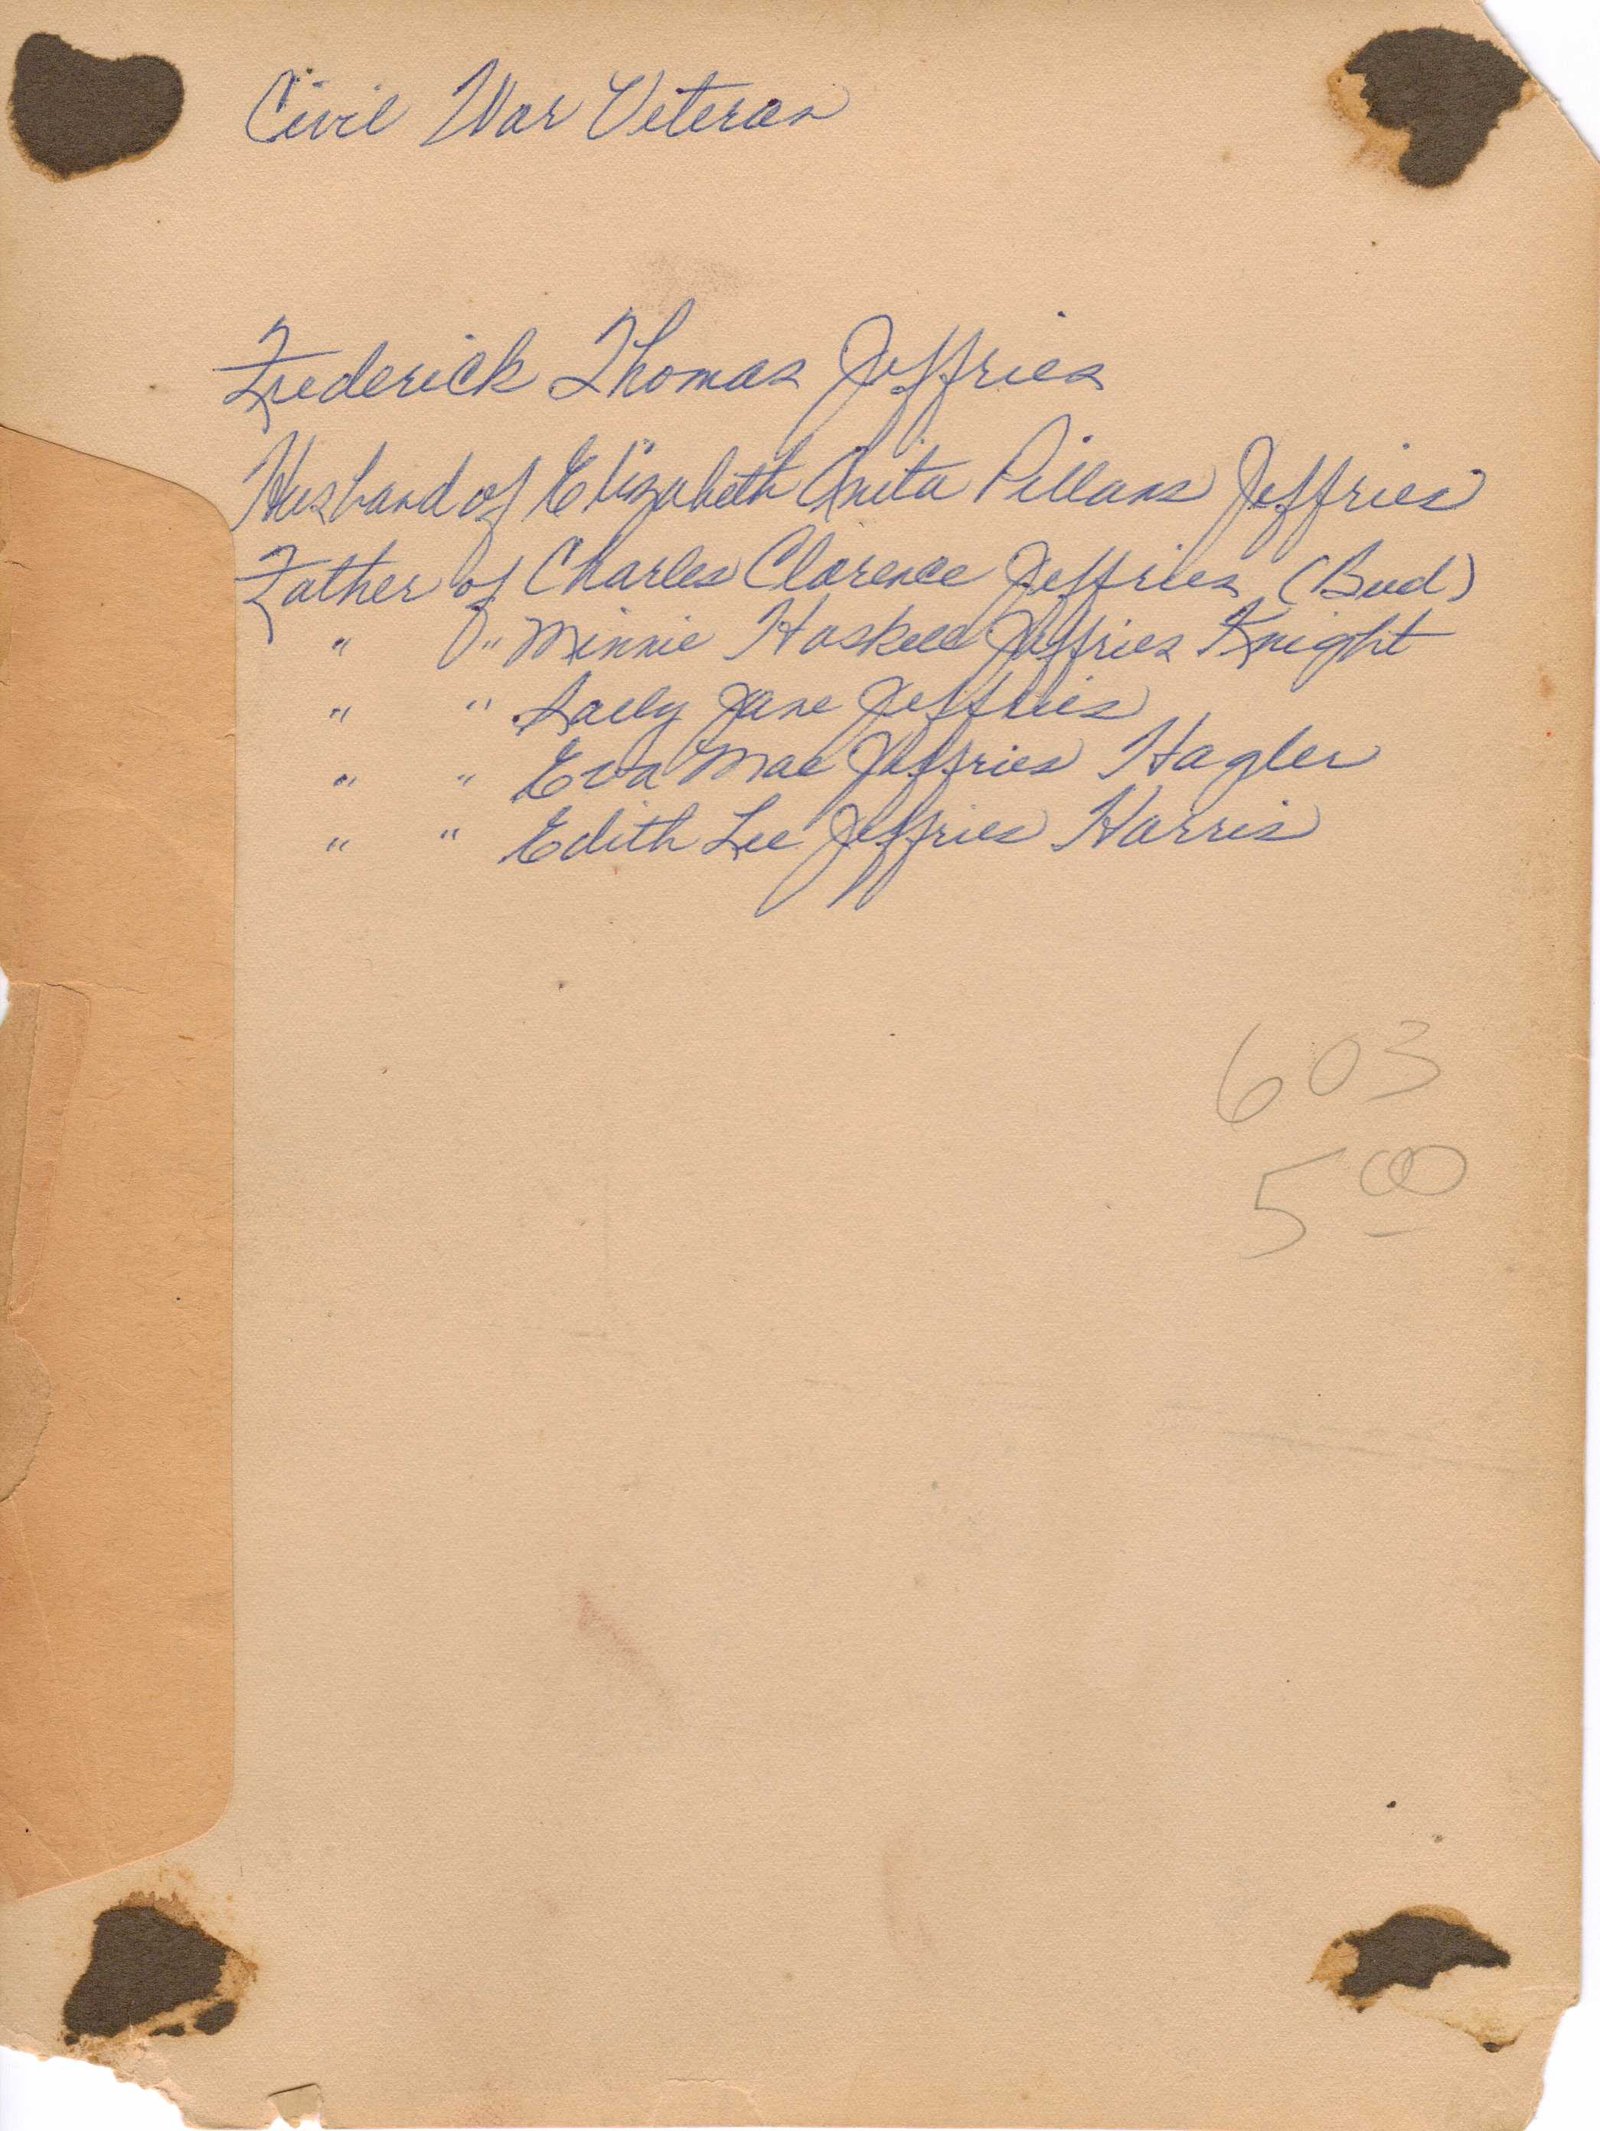 Civil War Veteran
Frederick Thomas Jeffries
Husband of Elizabeth Anita Pillans Jeffries
Father of Charles Clarence Jeffries (Bud)
" " Minnie Haskell Jeffries Knight
" " Sally Jane Jeffries
" " Eva Mae Jeffries Hagler
" " Edith Lee Jeffries Harris
603
5 00